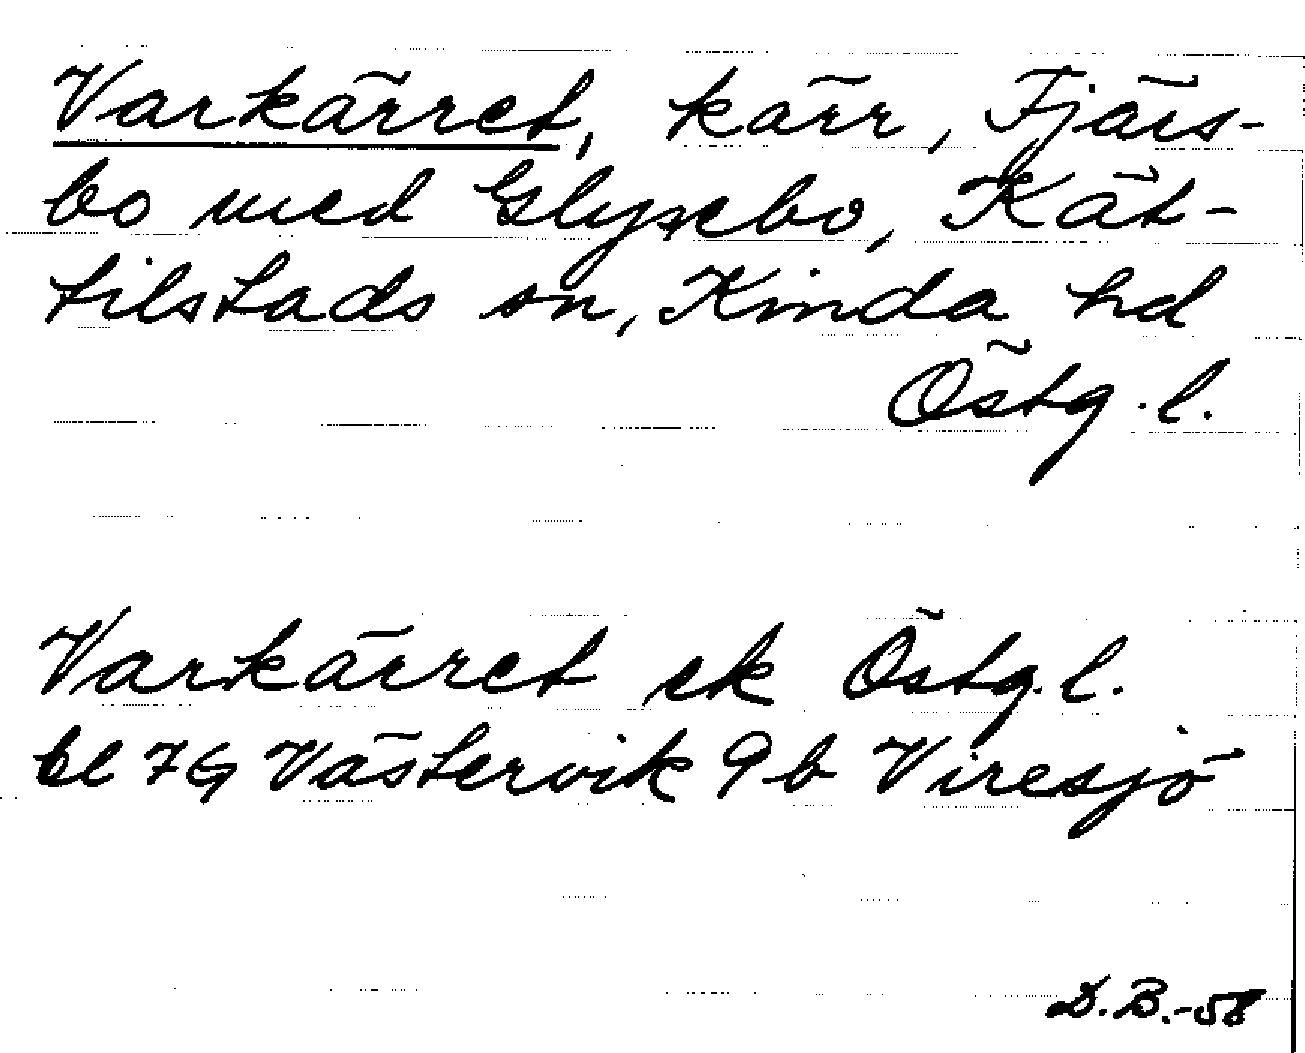 Varkärret, kärr, Fjärs-
bo med Glysebo, Kät-
tilstads sn, Kinda hd
Östg. l.
Varkärret ek Östg. l.
bl 7G Västervik 9b Viresjö
D.B.-58